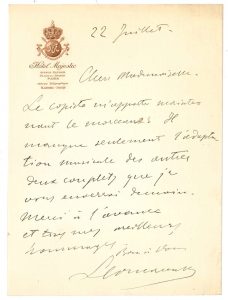 22 Juillet.
Hôtel Majestic
PARIS
Chère Mademoiselle.
Le copiste m'apporte mainte
nant le morceau. Il
manque seulement l'adapta
tion musicale des autres
deux couplets que je
vous enverrai demain.
Merci à l'avance
et tous mes meilleurs
hommages
Leoncavallo